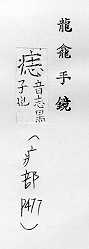 龍龕手鏡
痣音志黑
子也
(疒部
P477)